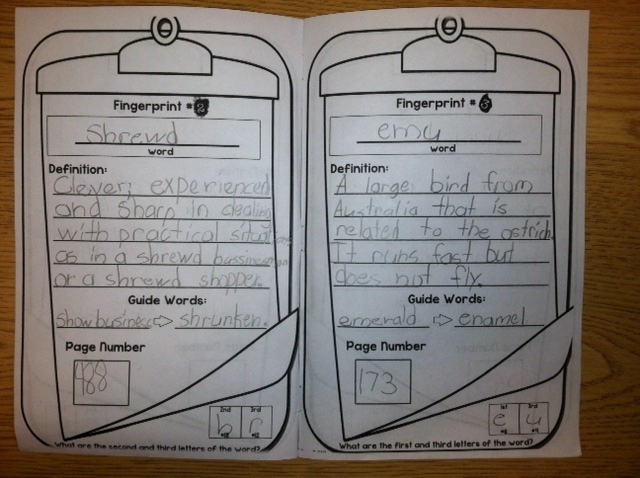 Fingerprint #2
Shrewd
word
Definition:
Clever; experienced
and sharp in dealing
with practical situations
as in a shrewd bussinessman
or a shrewd shopper.
Guide Words:
Show business ⇨ shrunken.
Page Number
488
2nd 3rd
h r
What are the second and third letters of the word?
Fingerprint #3
emu
word
Definition:
A large bird from
Australia that is
related to the ostrich.
It runs fast but
does not fly.
Guide Words:
emerald ⇨ enamel
Page Number
173
1st 3rd
e u
What are the first and third letters of the word?